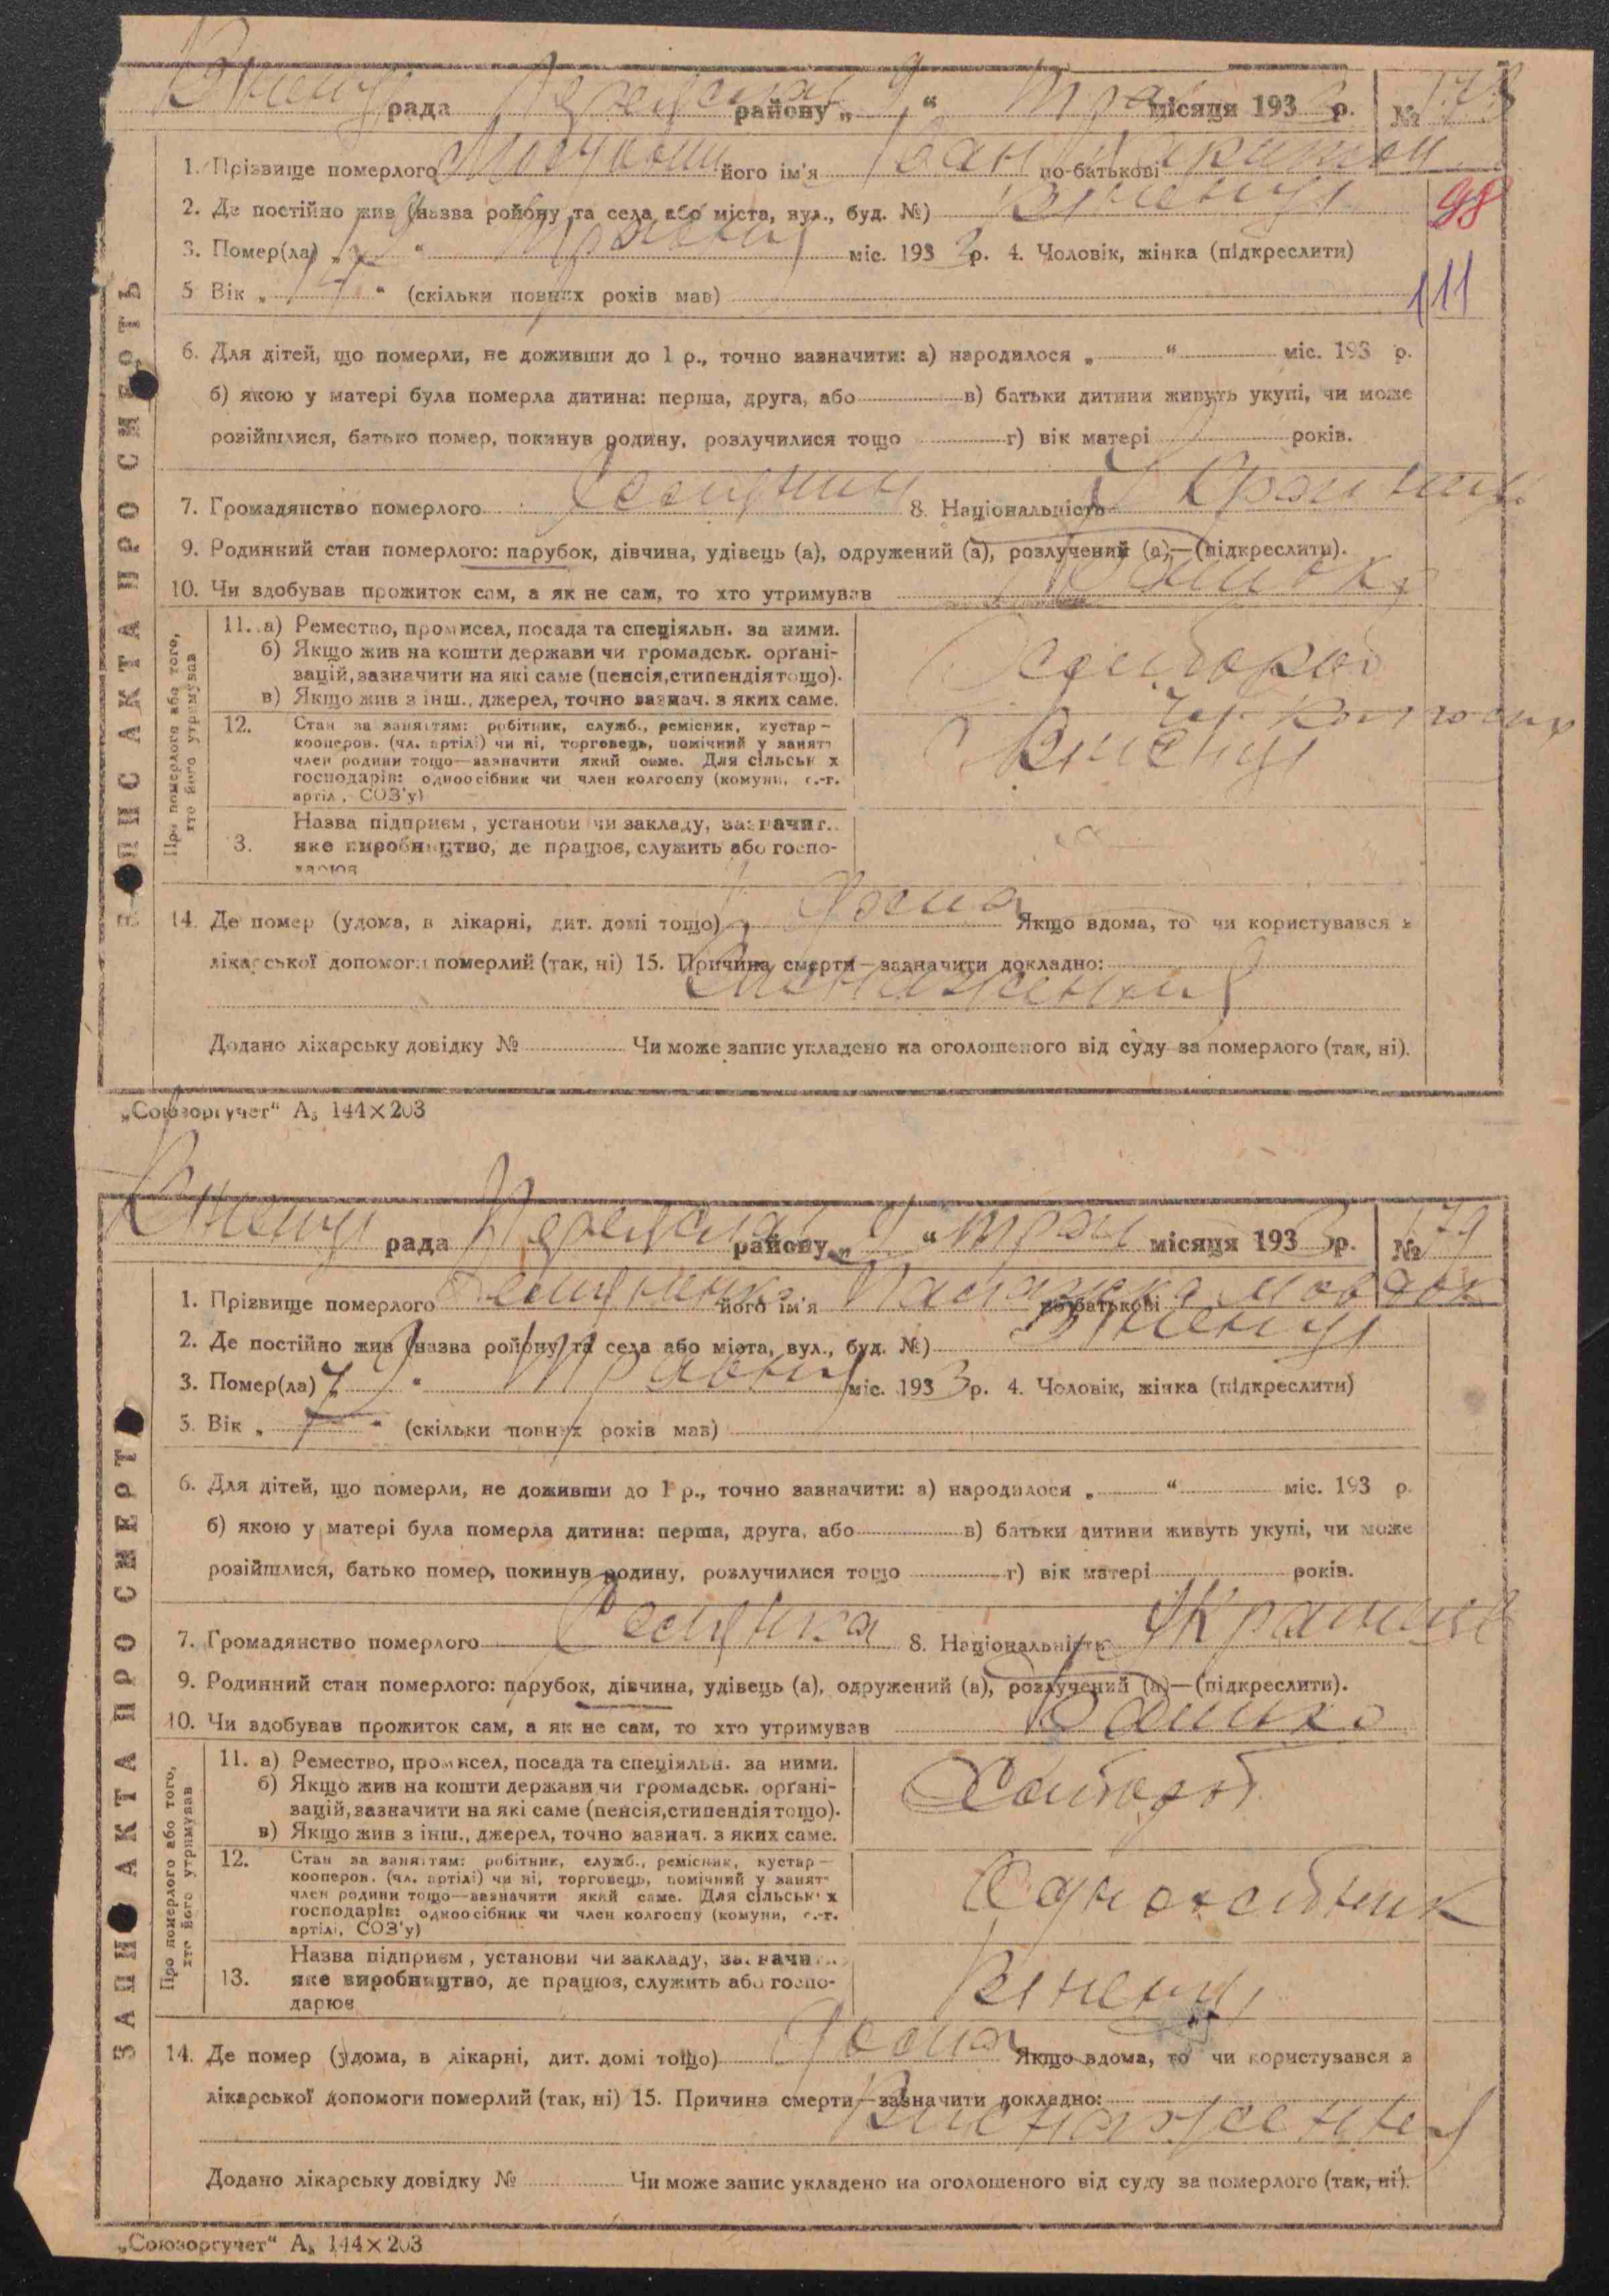 рада района „ 9 “ Трав місяця 1933 р. № 178
1. Прізвище померлого його ім'я Іван по-батькові
98
2. Де постійно жив (назва ройону та села або міста, вул., буд. №)
3. Помер(ла) „ “ Травня міс. 1933 р. 4. Чоловік, жінка (підкреслити)
5 Вік „ 17 “ (скільки повних років мав)
111
6. Для дітей, що померли, не доживши до 1 р., точно зазначити: а) народилося „ “ міс. 193 р.
б) якою у матері була померла дитина: перша, друга, або в) батьки дитини живуть укупі, чи може
розійшлися, батько помер, покинув родину, розлучилися тощо г) вік матері років.
7. Громадянство померлого Селянин 8. Національність Україниц
9. Родинний стан померлого: парубок, дівчина, удівець (а), одружений (а), розлучений (а),—(підкреслити).
10. Чи здобував прожиток сам, а як не сам, то хто утримував
ЗАПИС АКТА ПРО СМЕРТЬ
Про померлого або того, хто його утримував
11. а) Ремество, промисел, посада та спеціяльн. за ними.
б) Якщо жив на кошти держави чи громадськ. орґані-
зацій, зазначити на які саме (пенсія, стипендія тощо).
в) Якщо жив з інш., джерел, точно зазнач. з яких саме.
Хлібороб
12. Стан за заняттям: робітник, служб., ремісник, кустар—
кооперов. (чл. артілі) чи ні, торговець, помічний у занятт
член родини тощо—зазначити який саме. Для сільськ х
господарів: одноосібник чи член колгоспу (комуни, с.-г.
артіл , СОЗ'у)
13. Назва підприєм , установи чи закладу, зазначит.
яке виробництво, де працює, служить або госпо-
дарює
14. Де помер (удома, в лікарні, дит. домі тощо) Дома Якщо вдома, то чи користувався з
лікарської допомоги померлий (так, ні) 15. Причина смерти—зазначити докладно:
Виснаження
Додано лікарську довідку № Чи може запис укладено на оголошеного від суду за померлого (так, ні).
„Союзоргучет“ А₅ 144×203
рада Переяслав району „ 9 “ трав місяця 1933 р. № 179
1. Прізвище померлого його ім'я по-батькові
2. Де постійно жив (назва ройону та села або міста, вул., буд. №)
3. Помер(ла) „ “ Травня міс. 1933 р. 4. Чоловік, жінка (підкреслити)
5. Вік „ 7 “ (скільки повних років мав)
6. Для дітей, що померли, не доживши до 1 р., точно зазначити: а) народилося „ “ міс. 193 р.
б) якою у матері була померла дитина: перша, друга, або в) батьки дитини живуть укупі, чи може
розійшлися, батько помер, покинув родину, розлучилися тощо г) вік матері років.
7. Громадянство померлого Селянка 8. Національність
9. Родинний стан померлого: парубок, дівчина, удівець (а), одружений (а), розлучений (а)—(підкреслити).
10. Чи здобував прожиток сам, а як не сам, то хто утримував Батько
ЗАПИС АКТА ПРО СМЕРТЬ
Про померлого або того, хто його утримував
11. а) Ремество, промисел, посада та спеціяльн. за ними.
б) Якщо жив на кошти держави чи громадськ. орґані-
зацій, зазначити на які саме (пенсія, стипендія тощо).
в) Якщо жив з інш., джерел, точно зазнач. з яких саме.
Хлібороб
12. Стан за заняттям: робітник, служб., ремісник, кустар—
кооперов. (чл. артілі) чи ні, торговець, помічний у занятт
член родини тощо—зазначити який саме. Для сільськ х
господарів: одноосібник чи член колгоспу (комуни, с.-г.
артілі, СОЗ'у)
Одноосібник
13. Назва підприєм , установи чи закладу, зазначит
яке виробництво, де працює, служить або госпо-
дарює
14. Де помер (удома, в лікарні, дит. домі тощо) Дома Якщо вдома, то чи користувався з
лікарської допомоги померлий (так, ні) 15. Причина смерти—зазначити докладно:
Виснаження
Додано лікарську довідку № Чи може запис укладено на оголошеного від суду за померлого (так, ні).
„Союзоргучет“ А₅ 144×203